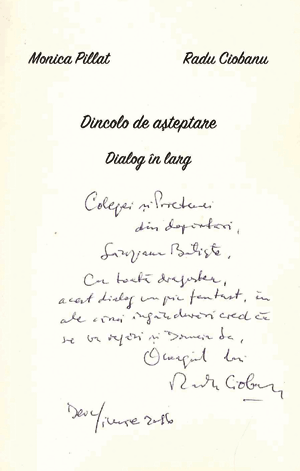 Monica Pillat Radu Ciobanu
Dincolo de așteptare
Dialog în larg
Colegei și Prietenei
din depărtări,
Cu toată dragostea,
acest dialog un pic fantast, în
ale cărui îngândurări cred că
se va regăsi și Domnia Sa,
Omagiul lui
Radu Ciobanu
Deva/iunie